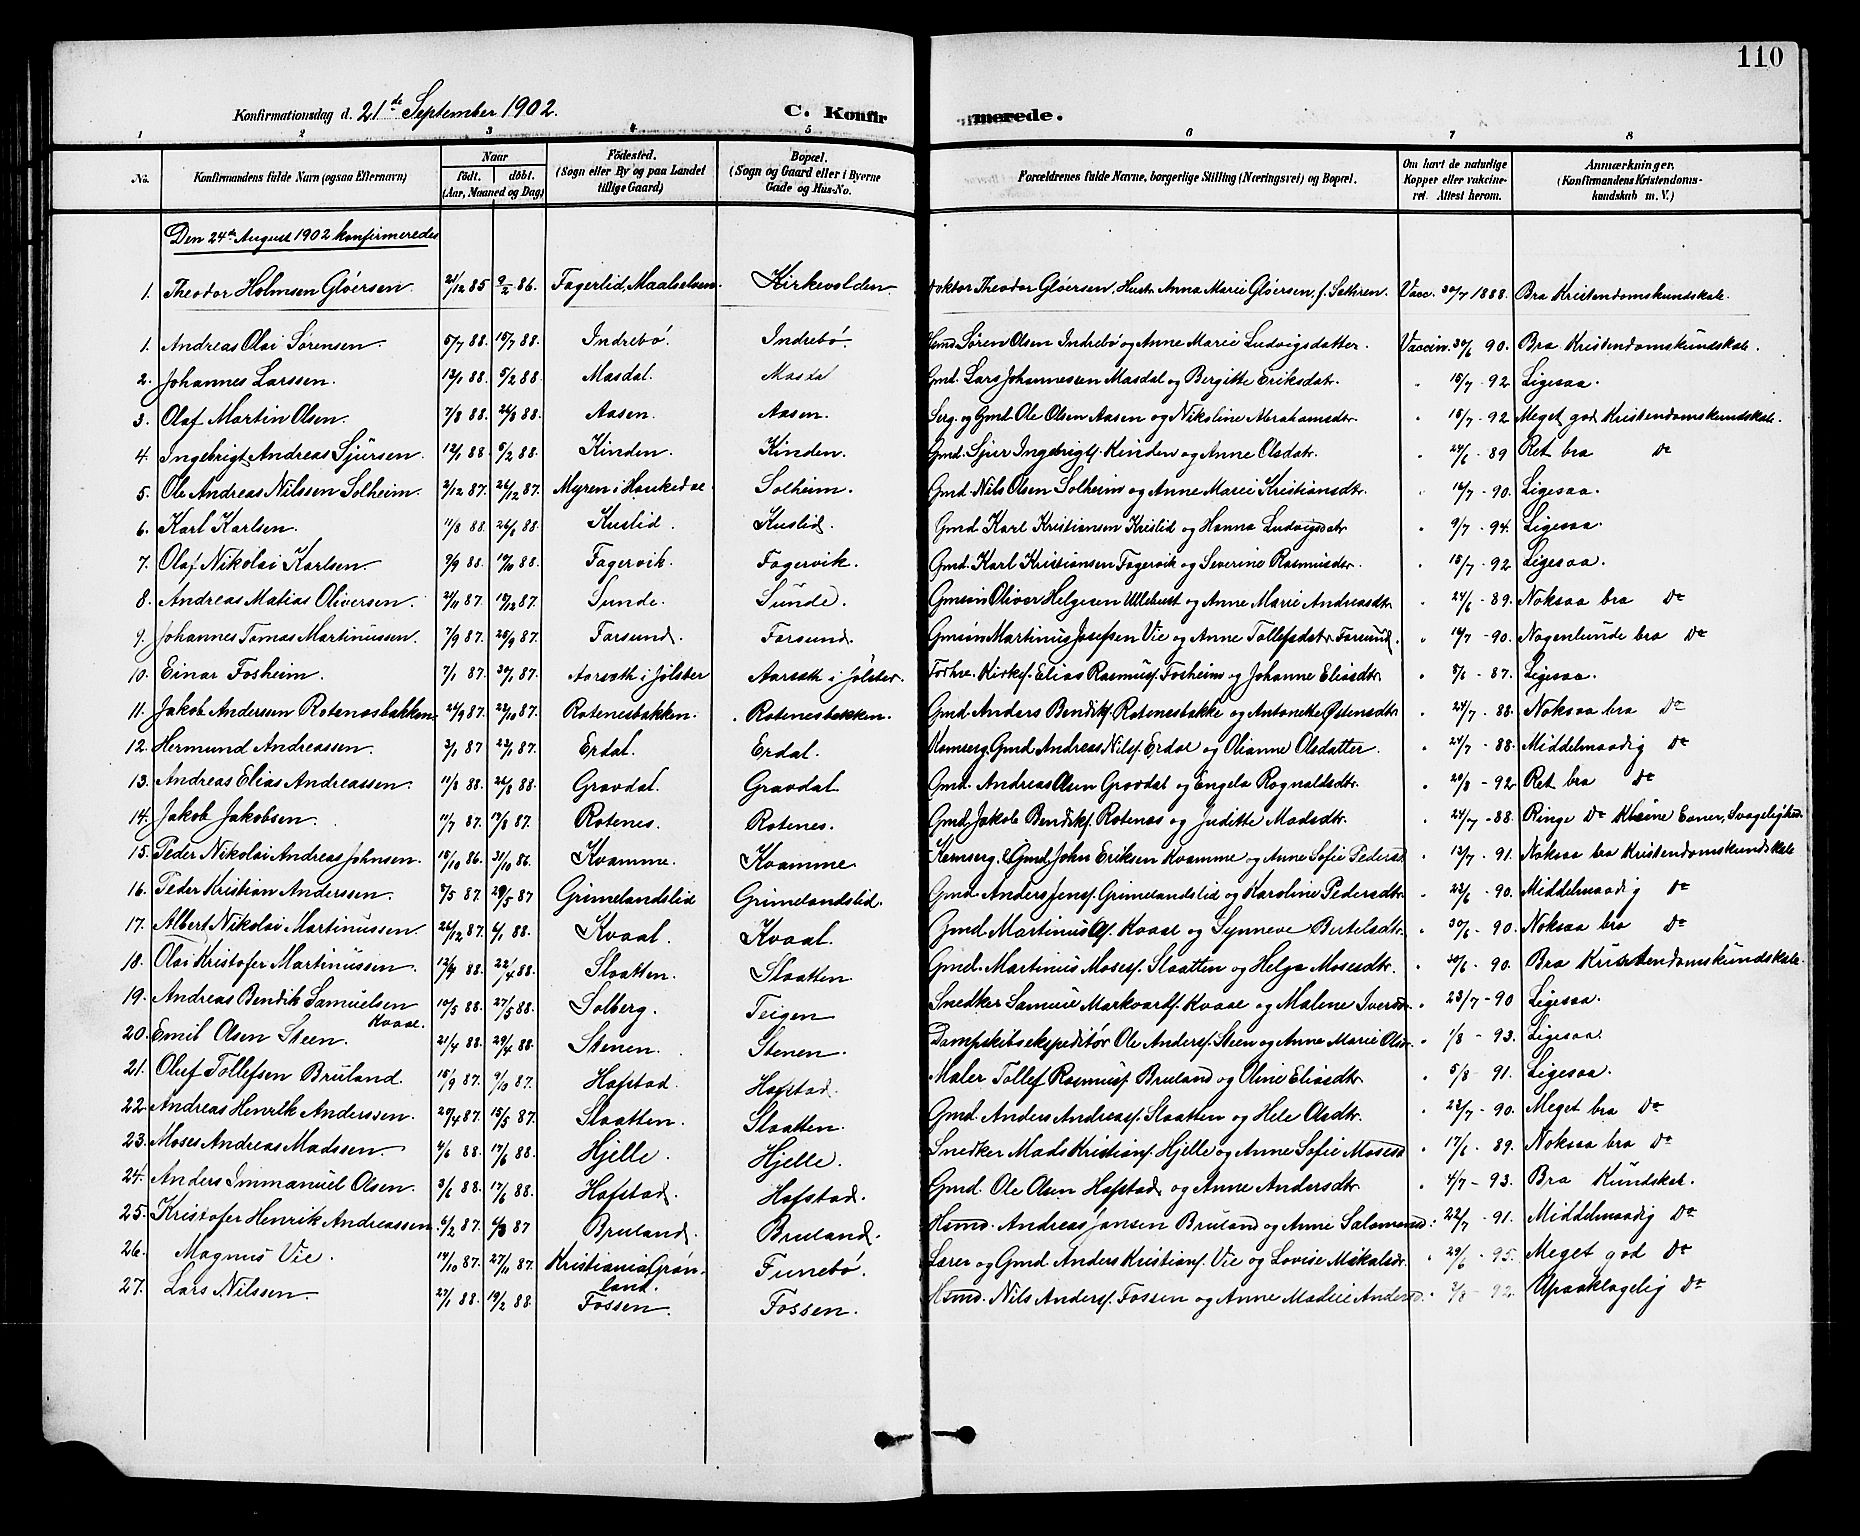 110
Konfirmationsdag d. 21de September 1902. C. Konfirmerede.
1 2 3 4 5 6 7 8
No. Konfirmandens fulde Navn (ogsaa Efternavn) Naar födt. döbt. (Aar, Maaned og Dag) Födested. (Sogn eller By og paa Landet tillige Gaard) Bopæl. (Sogn og Gaard eller i Byerne Gade og Hus-No. Forældrenes fulde Navne, borgerlige Stilling (Næringsvei) og Bopæl. Om havt de naturlige Kopper eller vakcineret. Attest herom. Anmærkninger. (Konfirmandens Kristendomskundskab m. V.)
Den 24de August 1902 konfirmeredes
1. Theodor Holmsen Glöersen. 21/12 85 9/2 86. Fagerlid, Maalselven. Kirkevolden. Doktor Theodor Glöersen, Hustr. Anna Marie Glöersen, f. Sethren. Vacc. 30/7 1888. Bra Kristendomskundskab.
1. Andreas Olai Sörensen. 5/7 88. 15/7 88. Indrebö. Indrebö. Hsmd Sören Olsen Indrebö og Anne Marie Ludvigsdatter. Vaccin. 30/6 90. Bra Kristendomskundskab.
2. Johannes Larssen. 13/1 88. 5/2 88. Masdal. Masdal Gmd. Lars Johannessen Masdal og Bergitte Eriksdatr. " 15/7 - 92 Ligesaa.
3. Olaf Martin Olsen. 7/8 88. 26/8 88. Aasen. Aasen. Serg. og Gmd Ole Olsen Aasen og Nikoline Abrahamsdtr " 15/7 - 92 Meget god Kristendomskundskab.
4. Ingebrigt Andreas Sjursen. 12/1 88. 5/2 88. Kinden. Kinden. Gmd. Sjur Ingebrigts. Kinden og Anne Olsdatr. " 24/6 - 89 Ret bra Do
5. Ole Andreas Nilssen Solheim. 2/12 87. 26/12 87. Myren i Haukedal. Solheim. Gmd. Nils Olsen Solheim og Anne Marie Kristiansdtr. " 16/7 - 90. Ligesaa.
6. Karl Karlsen. 11/8 88. 26/8 88. Kuslid. Kuslid. Gmd Karl Kristiansen Kuslid og Hanna Ludvigsdatr " 9/7 - 94. Ligesaa.
7. Olaf Nikolai Karlsen. 9/9 88. 14/10 88. Fagervik. Fagervik. Gmd. Karl Kristiansen Fagervik og Severine Rasmusdtr. " 15/7 - 92 Ligesaa.
8. Andreas Matias Oliversen. 21/11 87. 18/12 87. Sunde. Sunde. Gmsön Oliver Helgesen Ullebust og Anne Marie Andreasdtr " 24/6 - 89. Noksaa bra Do
9. Johannes Tomas Martinussen. 7/9 87. 25/9 87. Farsund. Farsund. Gmsön Martinus Josefsen Vie og Anne Tollefsdatr Farsund. " 16/7 - 90. Nogenlunde bra Do
10. Einar Fosheim. 7/1 87. 30/1 87. Aarseth i Jölster Aarseth i Jölster. Forhv. Kirkes. Elias Rasmus. Fosheim og Johanne Eliasdtr. " 8/6 - 87. Ligesaa.
11. Jakob Anderssen Rotenesbakken 24/9 87. 22/10 87. Rotenesbakken. Rotenesbakken. Gmd. Anders Bendiks. Rotenesbakke og Antonette Östensdtr " 24/7 - 88. Noksaa bra Do
12. Hermund Andreassen. 3/1 87 23/1 87. Erdal. Erdal. Komserg. Gmd Andreas Nils. Erdal og Olianne Olsdatter. " 24/7 - 88. Middelmaadig Do
13. Andreas Elias Andreassen. 11/8 88. 26/8 88. Gravdal. Gravdal Gmd. Andreas Olsen Gravdal og Engela Ragnaldsdtr. " 20/8 - 92 Ret bra Do
14. Jakob Jakobsen. 11/7 87. 14/8 87. Rotenes. Rotenes. Gmd Jakob Bendiks. Rotenes og Juditte Madsdtr. " 24/7 - 88. Ringe Do Kleine Evner, Svagelighed.
15. Peder Nikolai Andreas Johnsen. 15/10 86. 31/10 86. Kvamme. Kvamme Kemserg. & Gmd. John Eriksen Kvamme og Anne Sofie Pedersd " 13/7 - 91. Noksaa bra Kristendomskundskab
16. Peder Kristian Anderssen. 8/5 87. 29/5 87 Grimelandslid Grimelandslid. Gmd. Anders Jens. Grimelandslid og Karoline Pedersdtr. " 23/6 - 90. Middelmaadig Do
17. Albert Nikolai Martinussen 26/12 87. 6/1 88. Kvaal. Kvaal. Gmd Martinus Ols. Kvaal og Synneve Bertelsdtr. " 30/6 - 90. Noksaa bra Do
18. Olai Kristofer Martinussen. 12/4 88. 22/4 88. Slaatten. Slaatten Gmd. Martinus Moses. Slaatten og Helga Mosesdtr. " 30/6 - 90. Bra Kristendomskundskab.
19. Andreas Bendik Samuelsen Kvaal. 10/5 88. 27/5 88. Solberg. Teigen Snedker Samuel Markvards. Kvaal og Malene Iversdr " 23/7 - 90 Ligesaa.
20. Emil Olsen Steen. 21/4 88. 29/4 88. Stenen. Stenen. Dampskibsekspeditör Ole Anders. Steen og Anne Marie Olsdr. " 1/8 - 93. Ligesaa.
21. Oluf Tollefsen Bruland. 15/9 87. 9/10 87. Hafstad. Hafstad. Maler Tollef Rasmus. Bruland og Oline Eliasdtr " 5/8 - 91. Ligesaa.
22. Andreas Henrik Anderssen. 20/4 87. 15/5 87. Slaatten. Slaatten. Gmd. Anders Andreas. Slaatten og Hele Olsdtr. " 23/7 - 90. Meget bra Do
23. Moses Andreas Madssen. 4/6 88. 17/6 88. Hjelle. Hjelle. Snedker Mads Kristians. Hjelle og Anne Sofie Mosesd " 17/6 - 89. Noksaa bra Do
24. Anders Immanuel Olsen. 3/6 88. 17/6 88. Hafstad. Hafstad. Gmd. Ole Olsen Hafstad og Anne Andersdtr " 4/7 - 93. Bra Kundskab.
25. Kristofer Henrik Andreassen. 6/2 87. 6/3 87 Bruland. Bruland. Hsmd. Andreas Jansen Bruland og Anne Salomonsd. 22/7 - 91. Middelmaadig Do
26. Magnus Vie. 14/10 87. 27/11 87. Kristiania Grönland. Funebö. Lærer og Gmd. Anders Kristians. Vie og Lovise Mikalsdr. " 29/6 - 95. Meget god Do
27. Lars Nilssen. 27/1 88. 19/2 88. Fossen. Fossen. Hsmd. Nils Anders. Fossen og Anne Madlie Andersd. " 3/8 - 92. Upaaklagelig Do